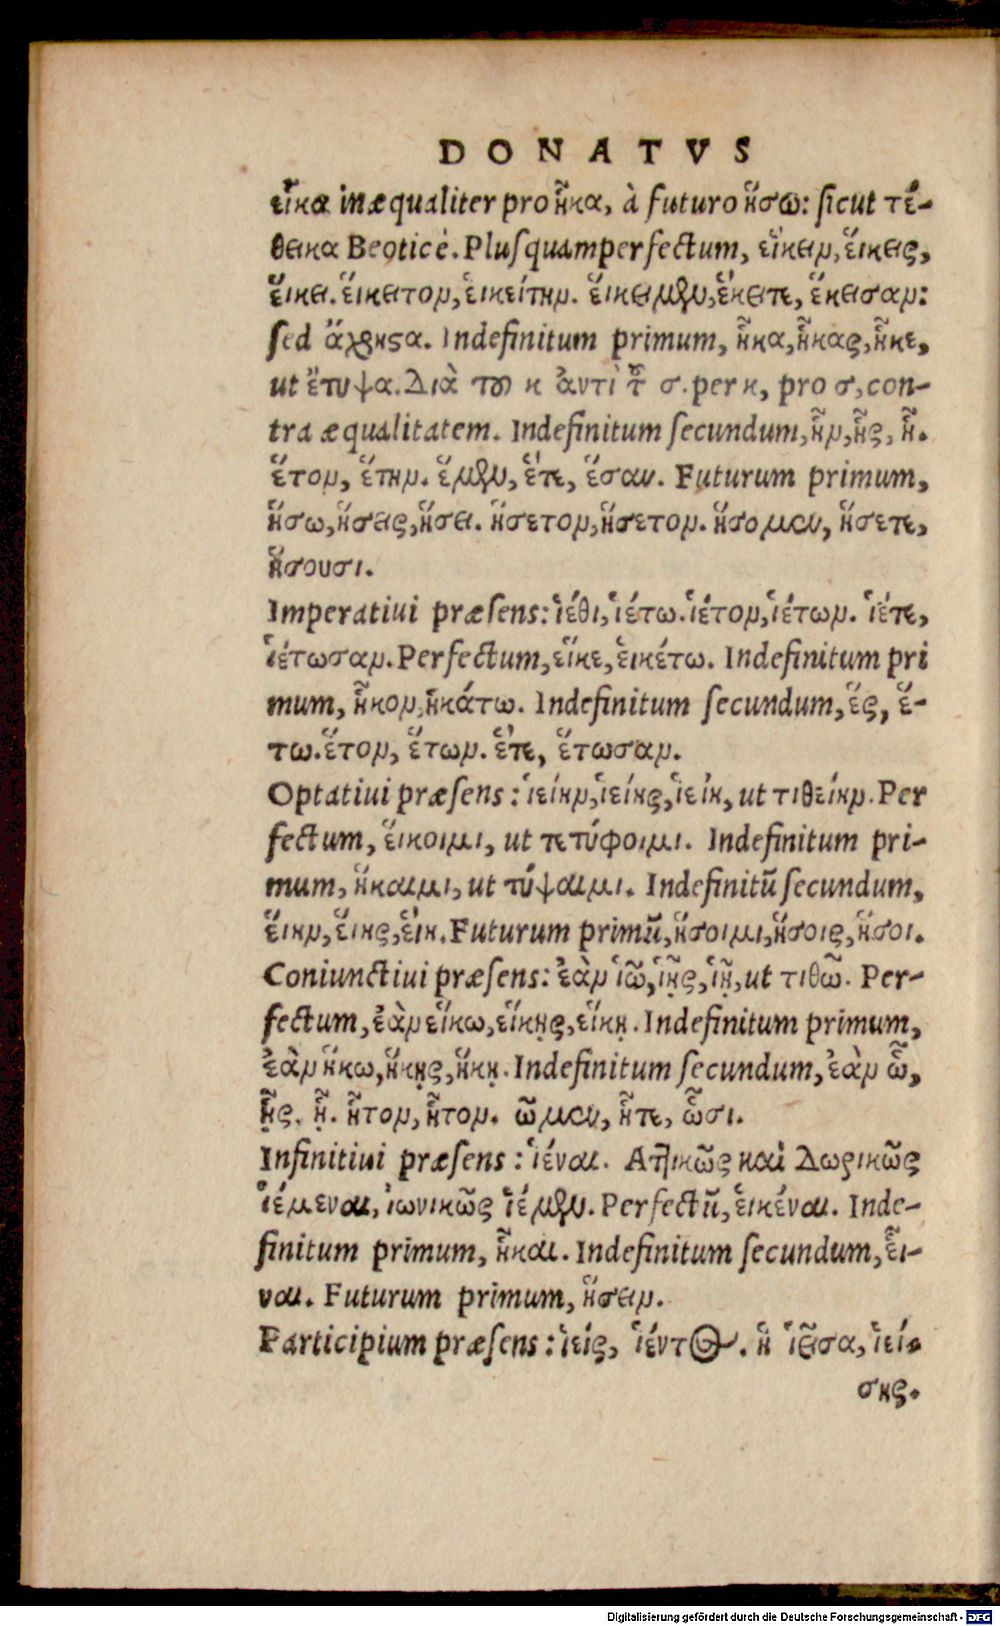 DONATVS
εἷκα inæqualiter pro ἧκα, à futuro ἥσω: sicut τέ-
θεικα Beoticè. Plusquamperfectum, εἵκειν, εἵκεις,
εἵκει. εἵκειτον, εἱκείτην. εἵκειμεν, εἵκειτε, εἵκεισαν:
sed ἄχρηϛα. Indefinitum primum, ἧκα, ἧκας, ἧκε,
ut ἔτυψα. Διὰ τοῦ κ ἀντὶ τ͂ σ. per κ, pro σ, con-
tra æqualitatem. Indefinitum secundum, ἧν, ἧς, ἧ.
ἕτον, ἕτην. ἕμεν, ἕτε, ἕσαν. Futurum primum,
ἥσω, ἥσεις, ἥσει. ἥσετον, ἥσετον. ἥσομεν, ἥσετε,
ἥσουσι.
Imperatiui præsens: ἵέθι, ἱέτω. ἵέτον, ἱέτων. ἵέτε,
ἱέτωσαν. Perfectum, εἷκε, εἱκέτω. Indefinitum pri
mum, ἧκον, ἡκάτω. Indefinitum secundum, ἕς, ἕ-
τω. ἕτον, ἕτων. ἕτε, ἕτωσαν.
Optatiui præsens: ἱείην, ἱείης, ἱείη, ut τιθείην. Per
fectum, εἵκοιμι, ut τετύφοιμι. Indefinitum pri-
mum, ἥκαιμι, ut τύψαιμι. Indefinitũ secundum,
εἵην, εἵης, εἵη. Futurum primũ, ἥσοιμι, ἥσοις, ἥσοι.
Coniunctiui præsens: ἐὰν ἱῶ, ἱῇς, ἱῇ, ut τιθῶ. Per-
fectum, ἐὰν εἵκω, εἵκῃς, εἵκῃ. Indefinitum primum,
ἐὰν ἥκω, ἥκῃς, ἥκῃ. Indefinitum secundum, ἐὰν ὧ,
ᾗς. ᾗ. ἧτον, ἧτον. ὧμεν, ἧτε, ὧσι.
Infinitiui præsens: ἱέναι. Ἀττικῶς καὶ Δωρικῶς
ἱέμεναι, ἰωνικῶς ἱέμεν. Perfectũ, εἱκέναι. Inde-
finitum primum, ἧκαι. Indefinitum secundum, εἷ-
ναι. Futurum primum, ἥσειν.
Participium præsens: ἱείς, ἱέντος. ἡ ἱεῖσα, ἱεί-
σης.
Digitalisierung gefördert durch die Deutsche Forschungsgemeinschaft - DFG